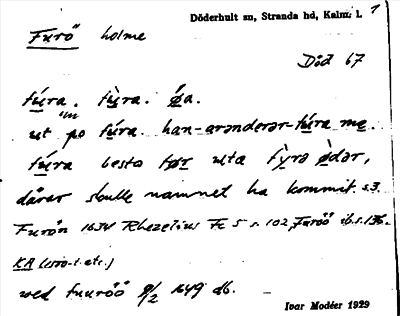 Döderhult sn, Stranda hd, Kalm. l. 1
Furö holme
Död 67
fúra. fùra. ǿa.
ut po fúra. han-arənderər-fúra mę.
fúra besto før uta fy̧rə ǿdər,
därav skulle namnet ha kommit. s.3.
Furön 1634 Rhezelius Fc 5 s. 102, Furöö ib. s. 136.
KA (1500-t. etc.)
wed fuuröö 9/2 1649 db.
Ivar Modéer 1929